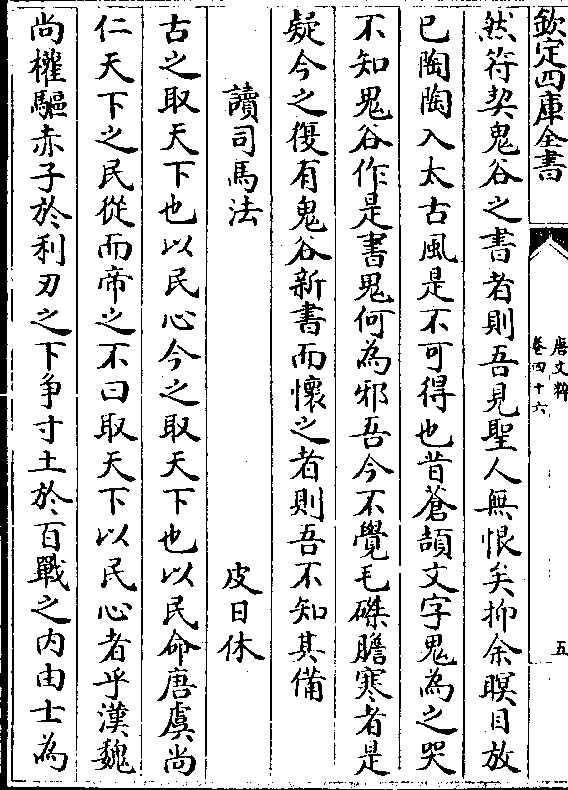 欽定四庫全書
唐文粹
卷四十六
五
然符契鬼谷之書者則吾見聖人無恨矣抑余瞑目放
已陶陶入太古風是不可得也昔蒼頡文字鬼為之哭
不知鬼谷作是書鬼何為邪吾今不覺毛磔膽寒者是
疑今之復有鬼谷新書而懷之者則吾不知其備
讀司馬法
皮日休
古之取天下也以民心今之取天下也以民命唐虞尚
仁天下之民從而帝之不曰取天下以民心者乎漢魏
尚權驅赤子於利刃之下爭寸土於百戰之内由士為